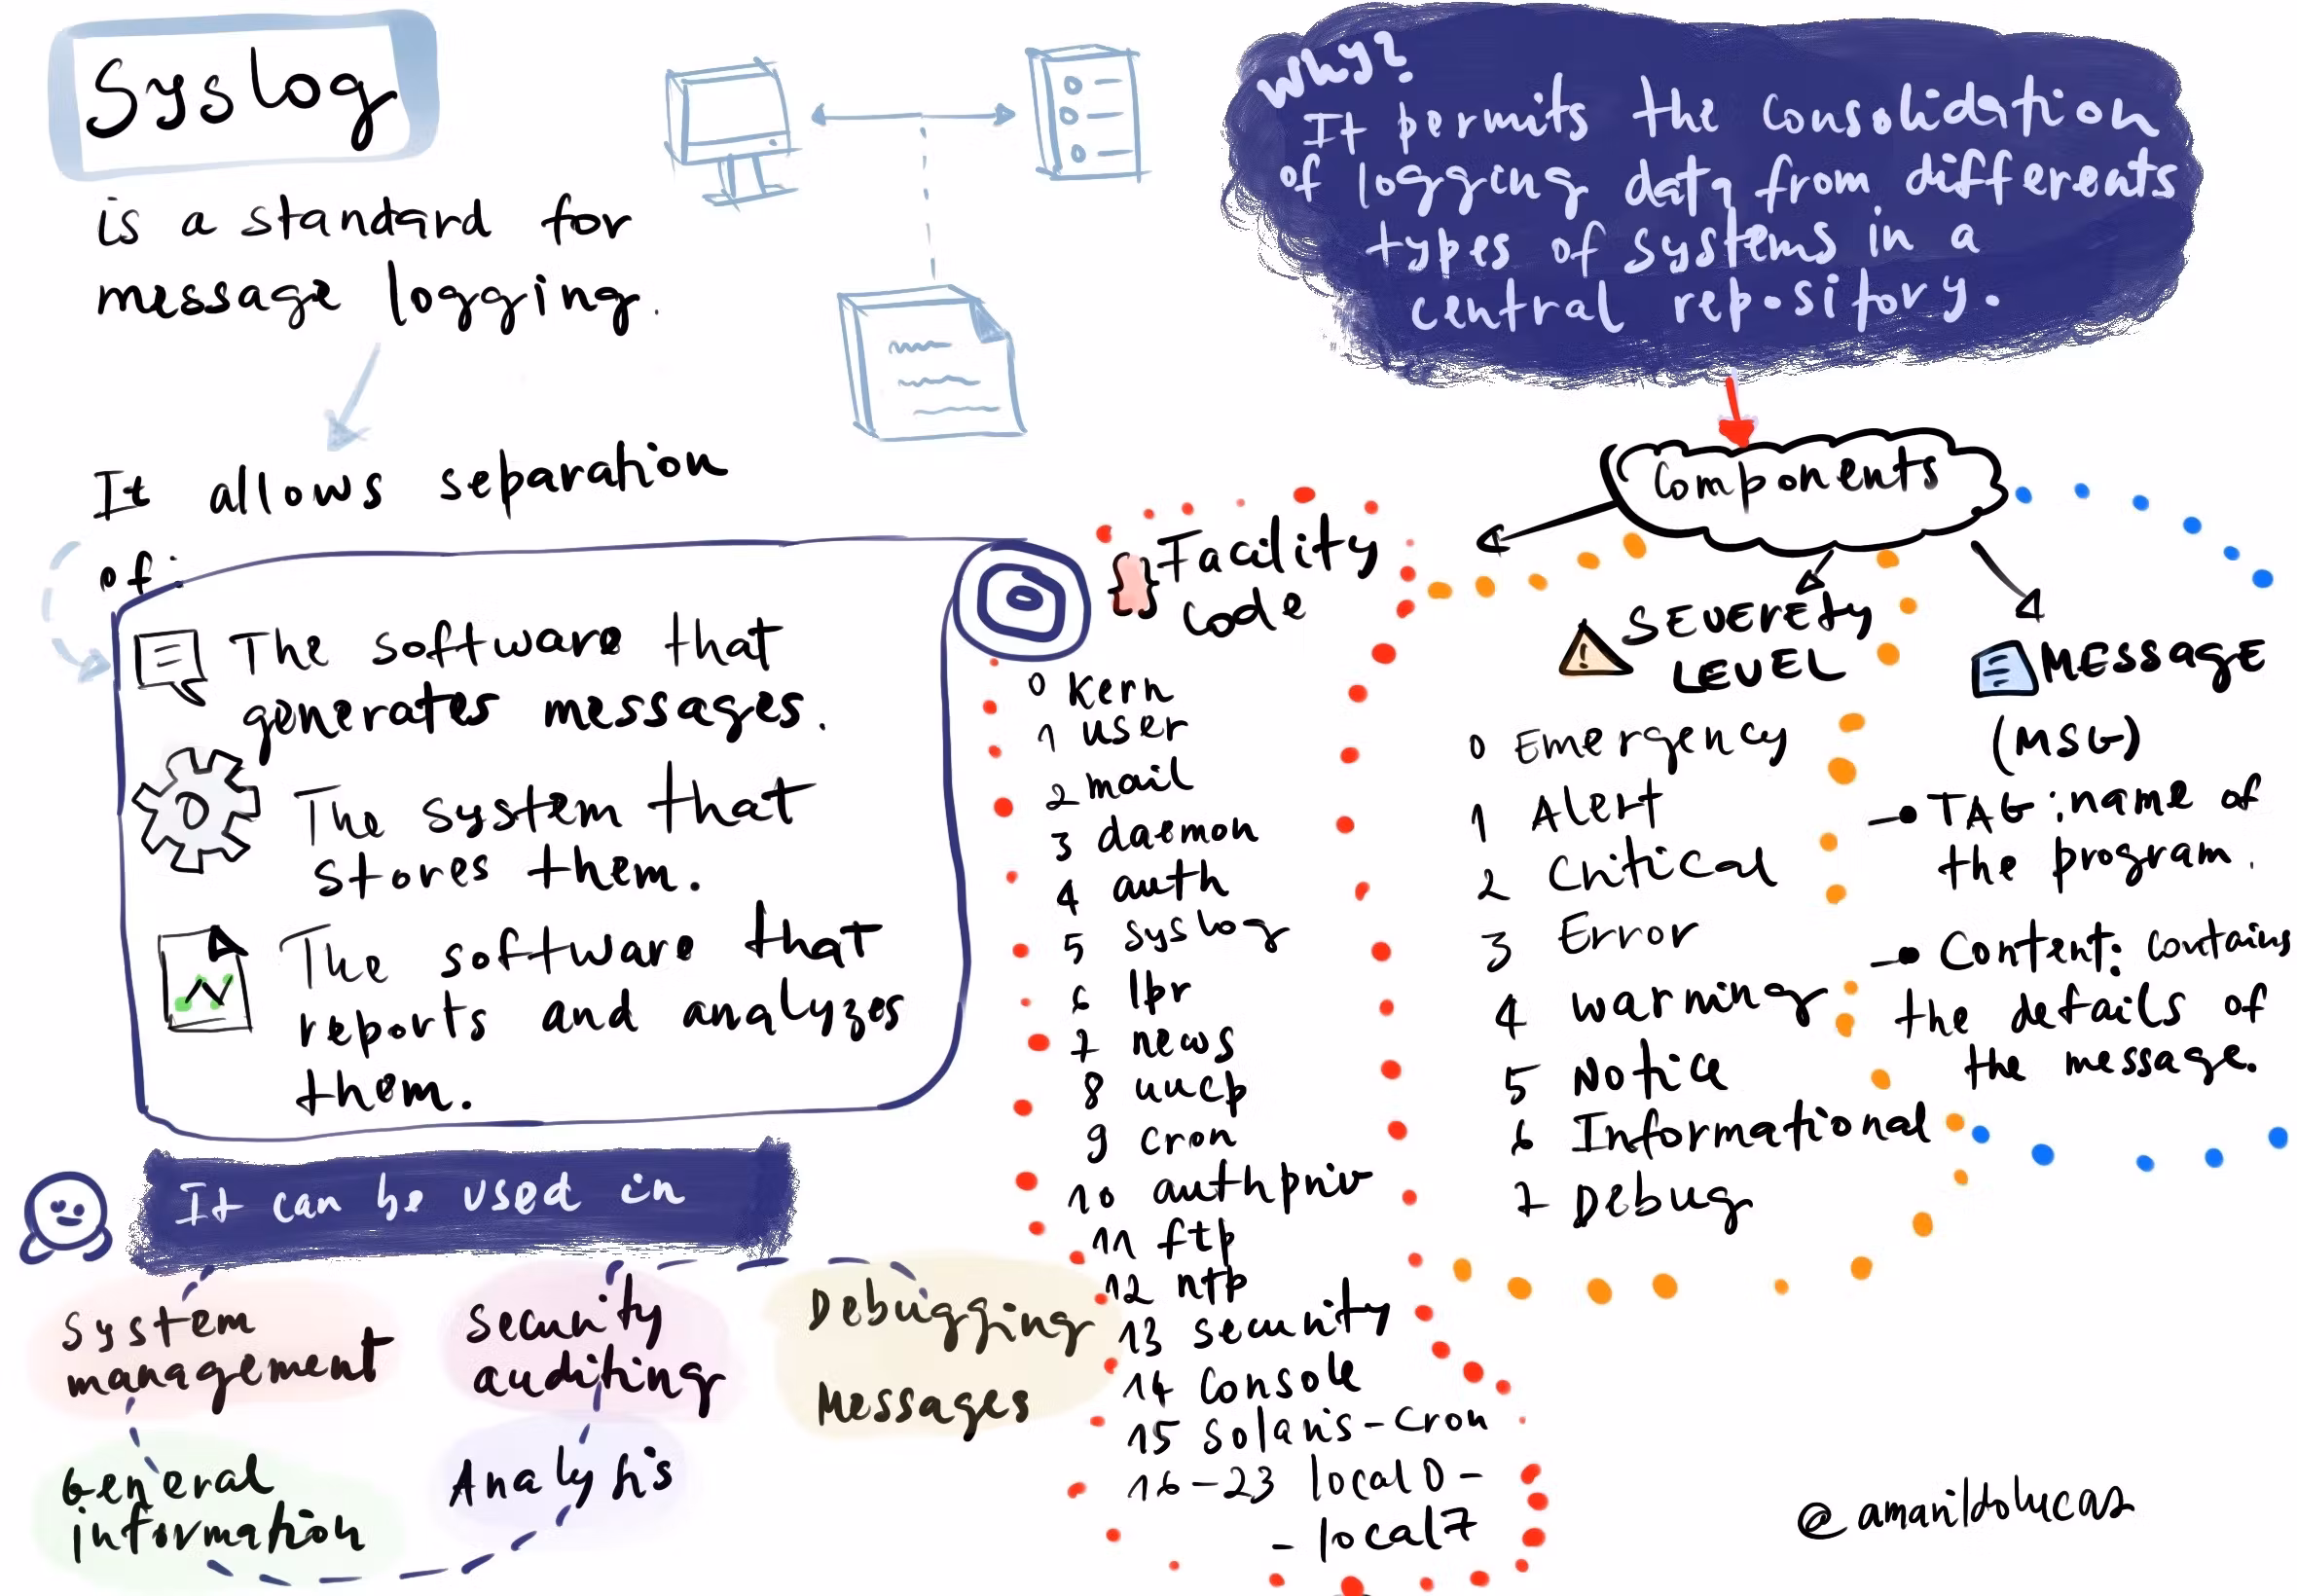 Syslog
is a standard for
message logging.
It allows separation
of:
The software that
generates messages.
The system that
stores them.
The software that
reports and analyzes
them.
It can be used in
System
management
Security
auditing
Debugging
Messages
General
information
Analysis
Why?
It permits the consolidation
of logging data from differents
types of systems in a
central repository.
Components
{} Facility
code
0 Kern
1 user
2 mail
3 daemon
4 auth
5 syslog
6 lpr
7 news
8 uucp
9 cron
10 authpriv
11 ftp
12 ntp
13 security
14 Console
15 Solaris-cron
16-23 local0-
- local7
SEVERETY
LEVEL
0 Emergency
1 Alert
2 Critical
3 Error
4 warning
5 Notice
6 Informational
7 Debug
MESSAGE
(MSG)
TAG: name of
the program.
Content: contains
the details of
the message.
@amarildolucas